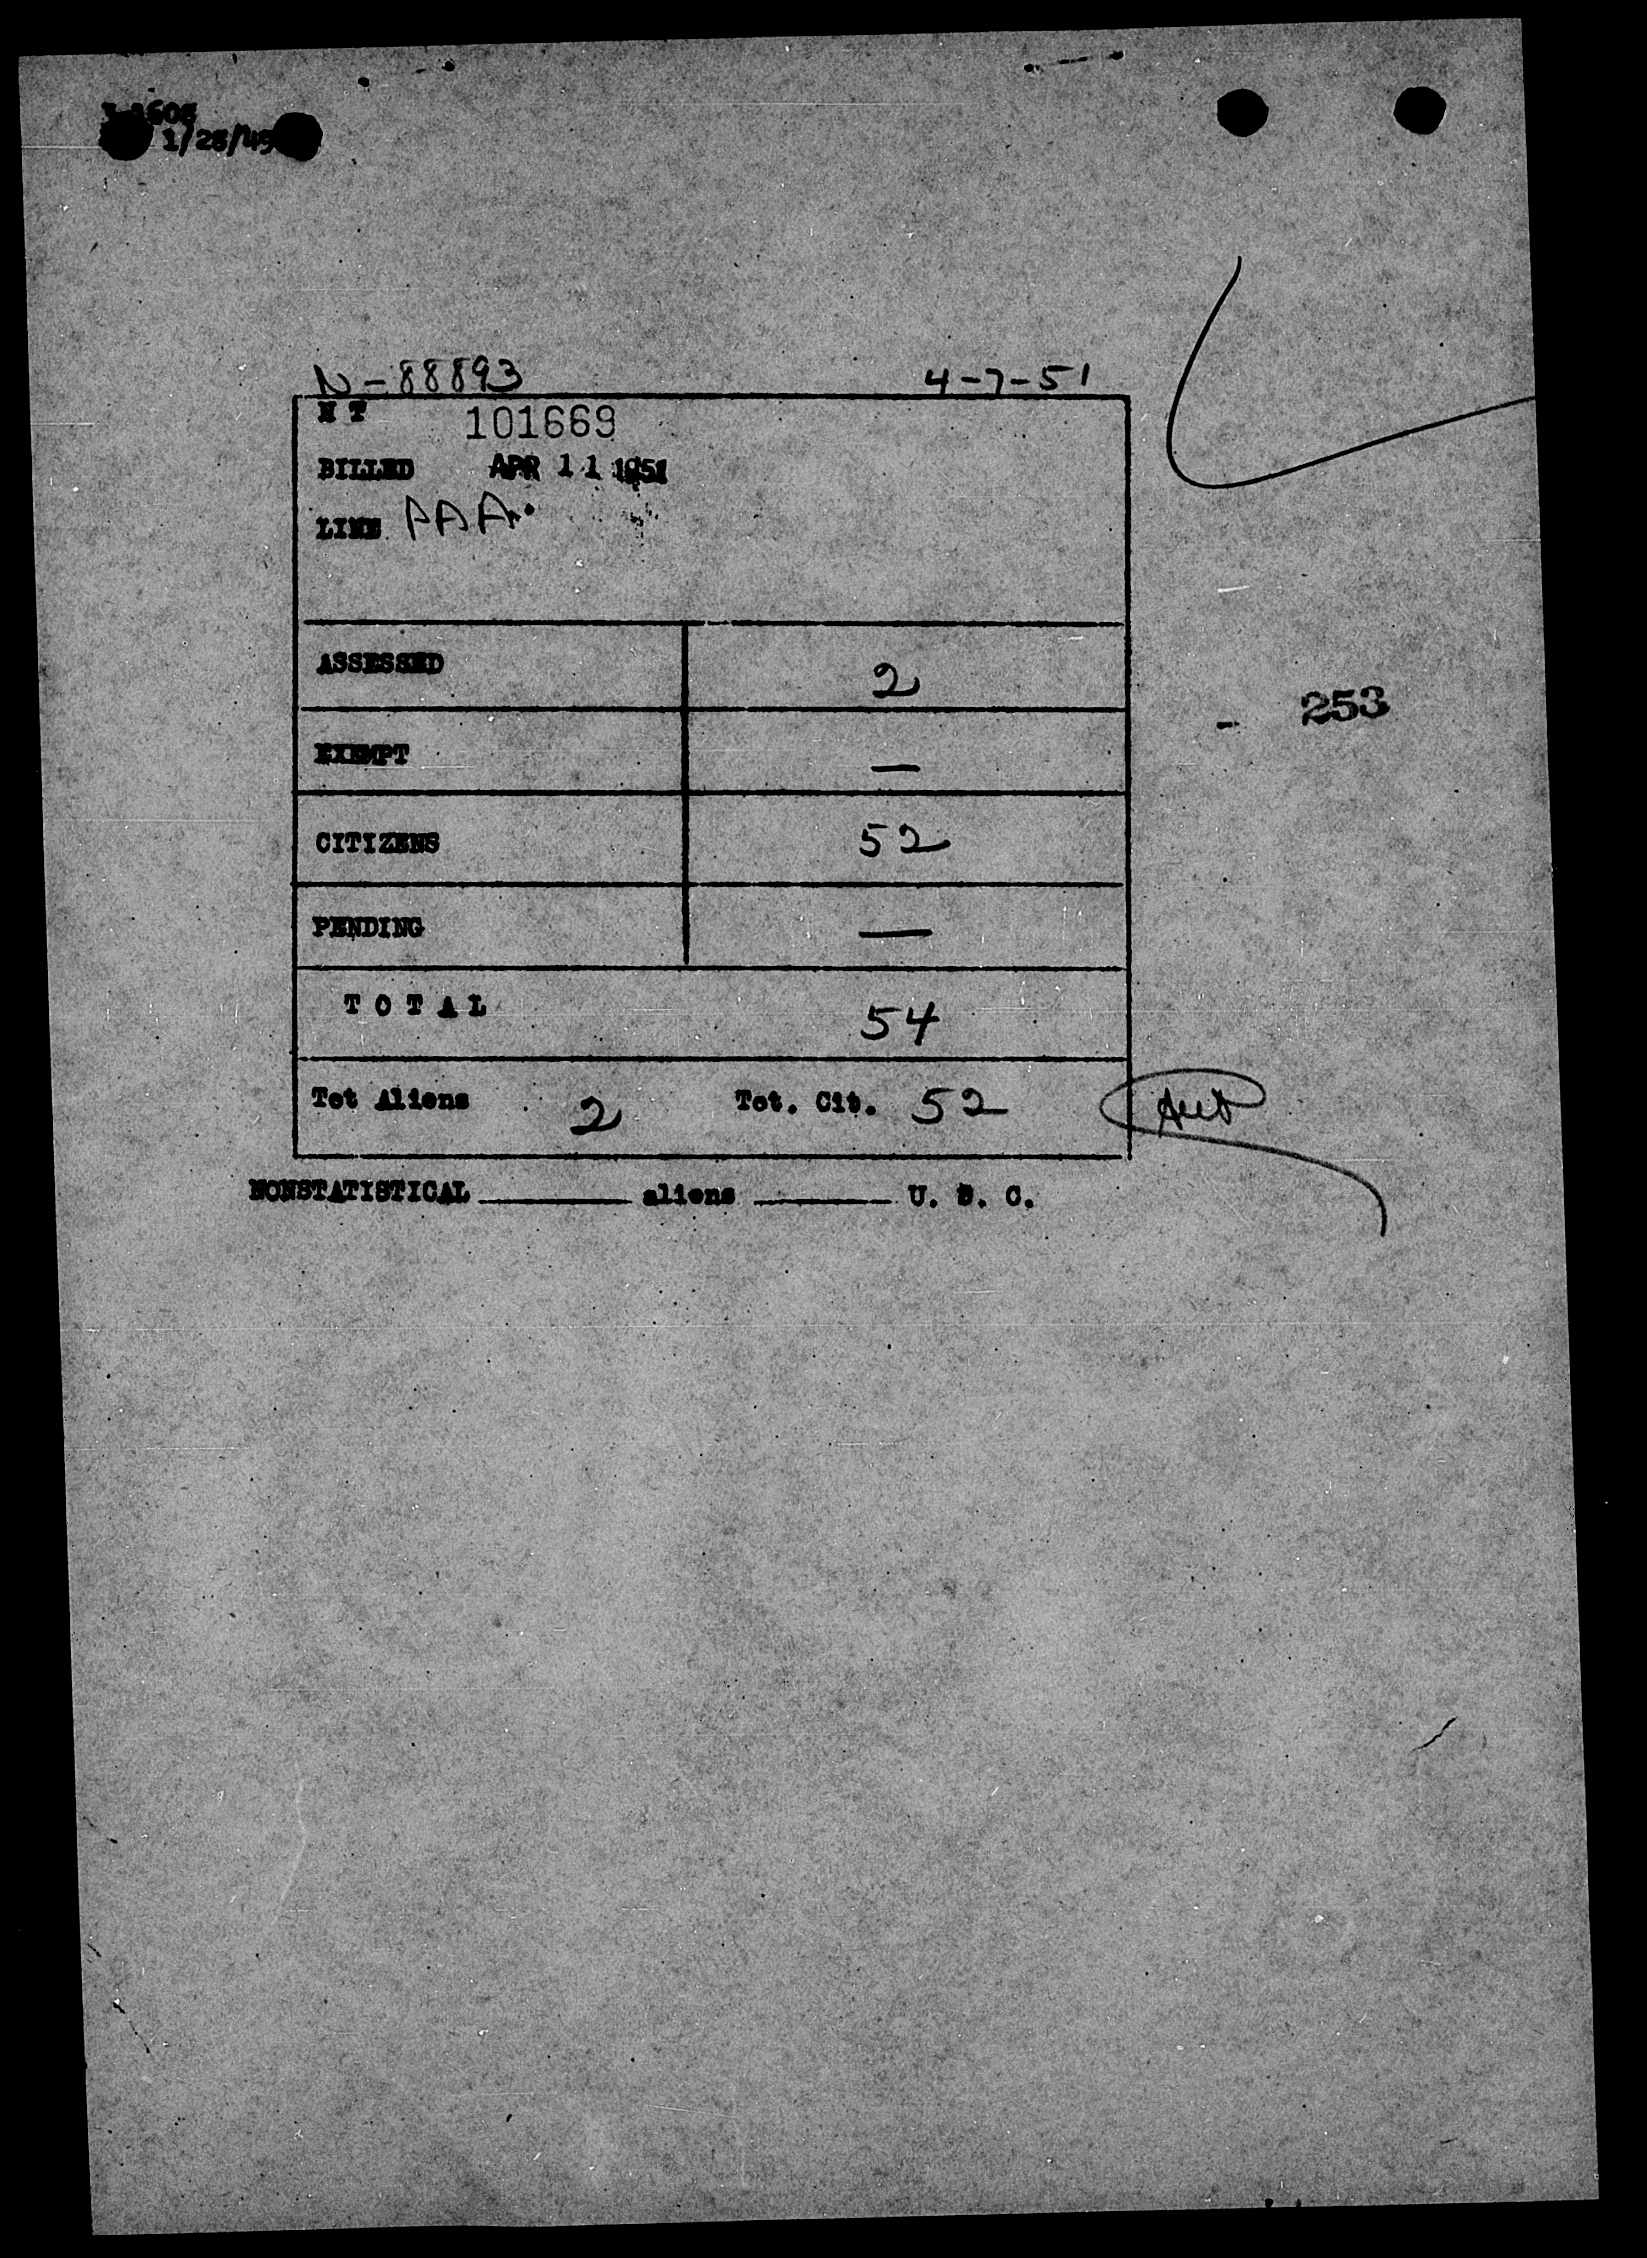 1/28/49
N-88893 4-7-51
N T 101669
BILLED APR 11 1951
LINE PAA
ASSESSED 2
EXEMPT —
- 253
CITIZENS 52
PENDING —
T O T A L 54
Tot Aliens 2 Tot. Cit. 52
NONSTATISTICAL ________ aliens ________ U. S. C.